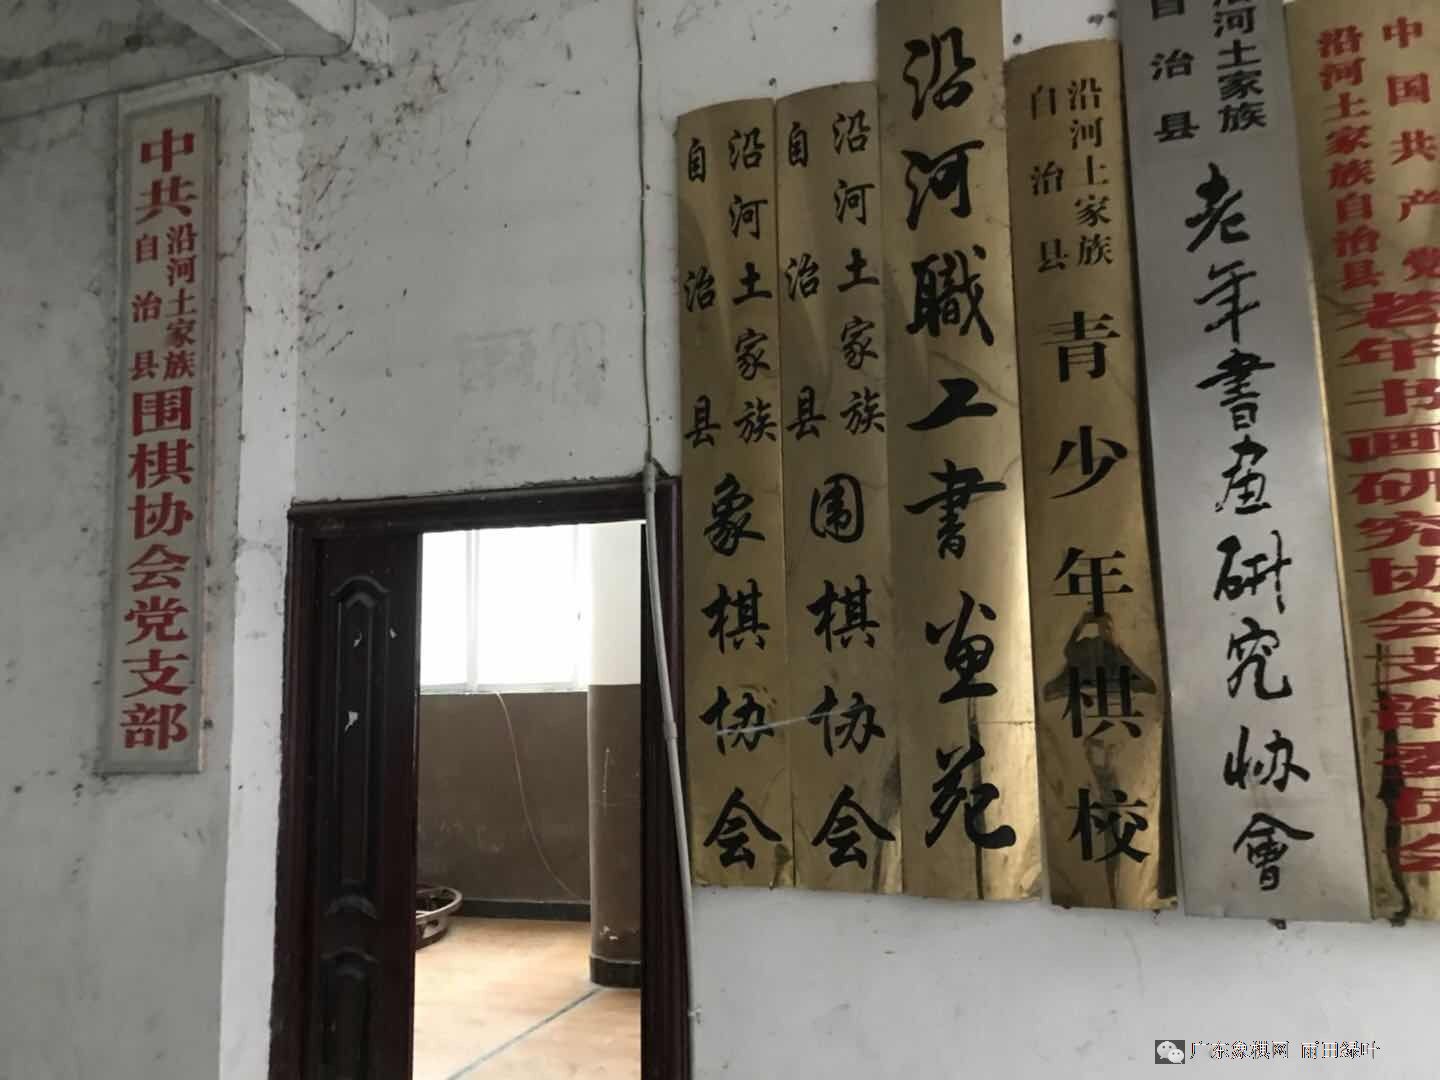 中共
沿河土家族
自治县
围棋协会党支部
沿河土家族
自治县
象棋协会
沿河土家族
自治县
围棋协会
沿河職工書画苑
沿河土家族
自治县
青少年棋校
沿河土家族
自治县
老年書画研究协會
中国共产党
沿河土家族自治县
老年书画研究协会支部委员会
广东象棋网 雨田绿叶